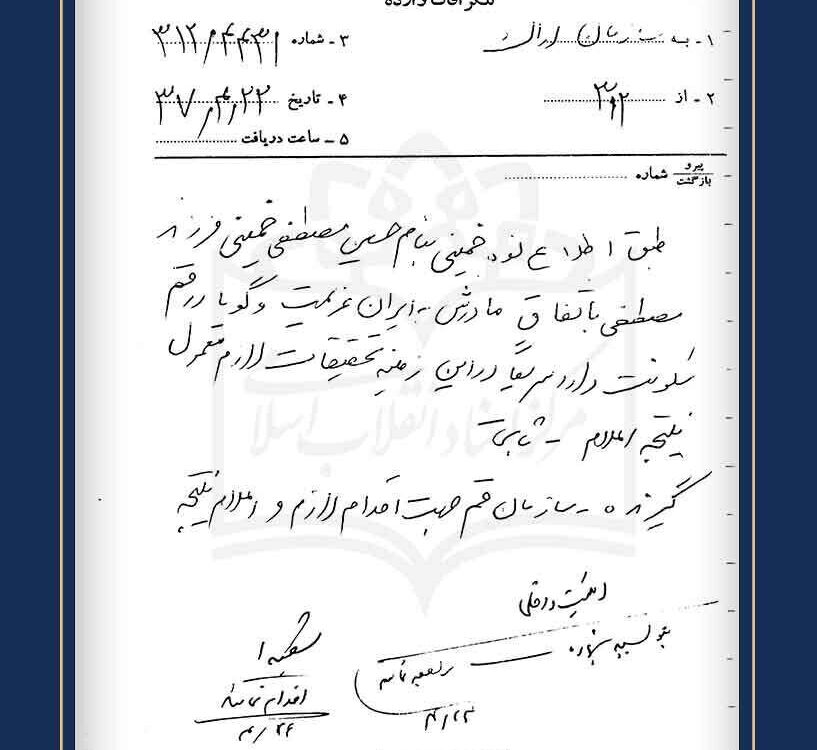 تلگرافات وارده
۱- به سازمان اراک
۳- شماره ۳۱۲/۴۴۳۱
۲- از ۳۱۲
۴- تاریخ ۳۷/۴/۲۲
۵- ساعت دریافت
پیرو بازگشت شماره
طبق اطلاع نوه خمینی بنام حسین مصطفی خمینی فرزند
مصطفی باتفاق مادرش به ایران عزیمت و گویا در قم
سکونت دارد سریعا در این زمینه تحقیقات لازم معمول
نتیجه اعلام - ثابتی
گیرنده - سازمان قم جهت اقدام لازم و اعلام نتیجه
امنیت داخلی
ملاحظه نمائید
۴/۲۳
شعبه ۱
اقدام نمائید
۴/۲۴
مرکز اسناد انقلاب اسلا